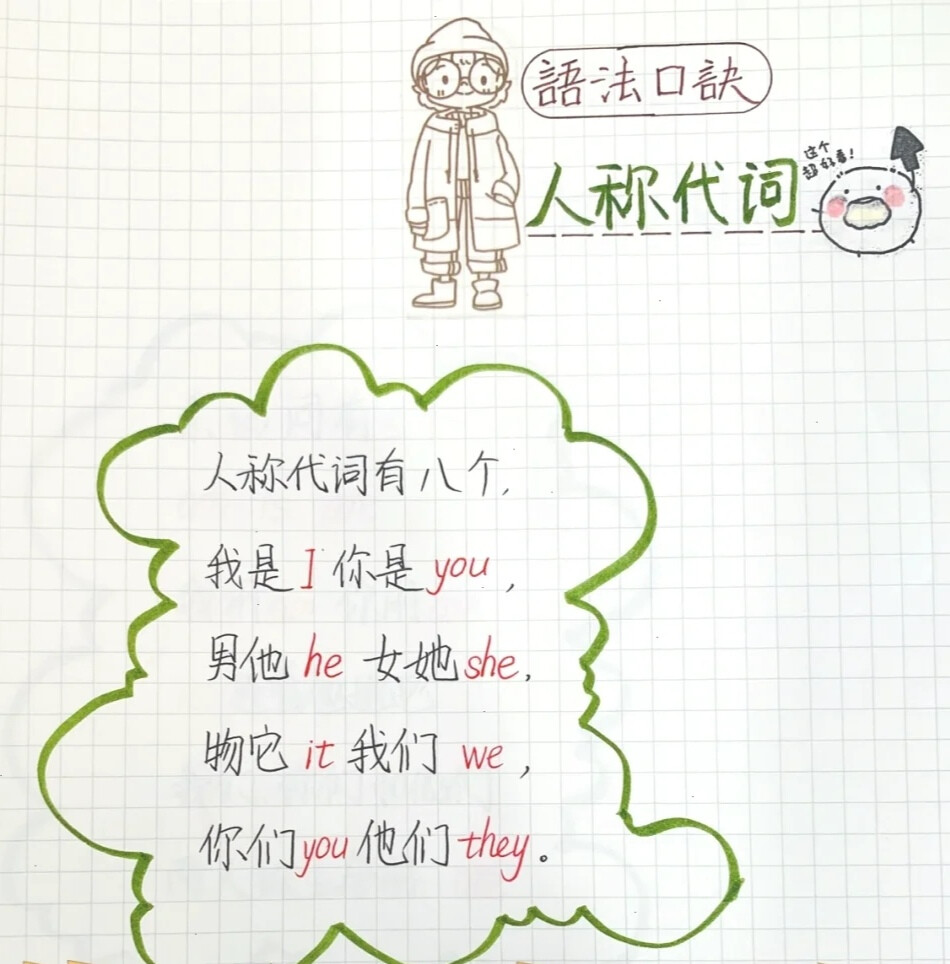 語法口訣
这个
超好看!
人称代词
人称代词有八个,
我是 I 你是 you,
男他 he 女她 she,
物它 it 我们 we,
你们 you 他们 they。